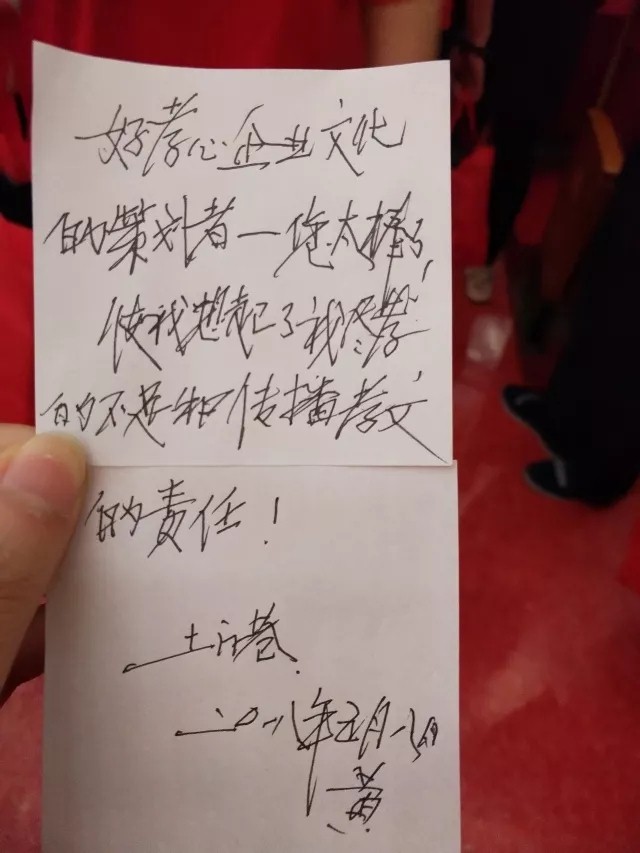 好孝心企业文化
的策划者一炮太棒了,
使我想起了我尽孝
的不足和传播孝文
的责任!
土门巷
二〇一八年五月一八日
黄